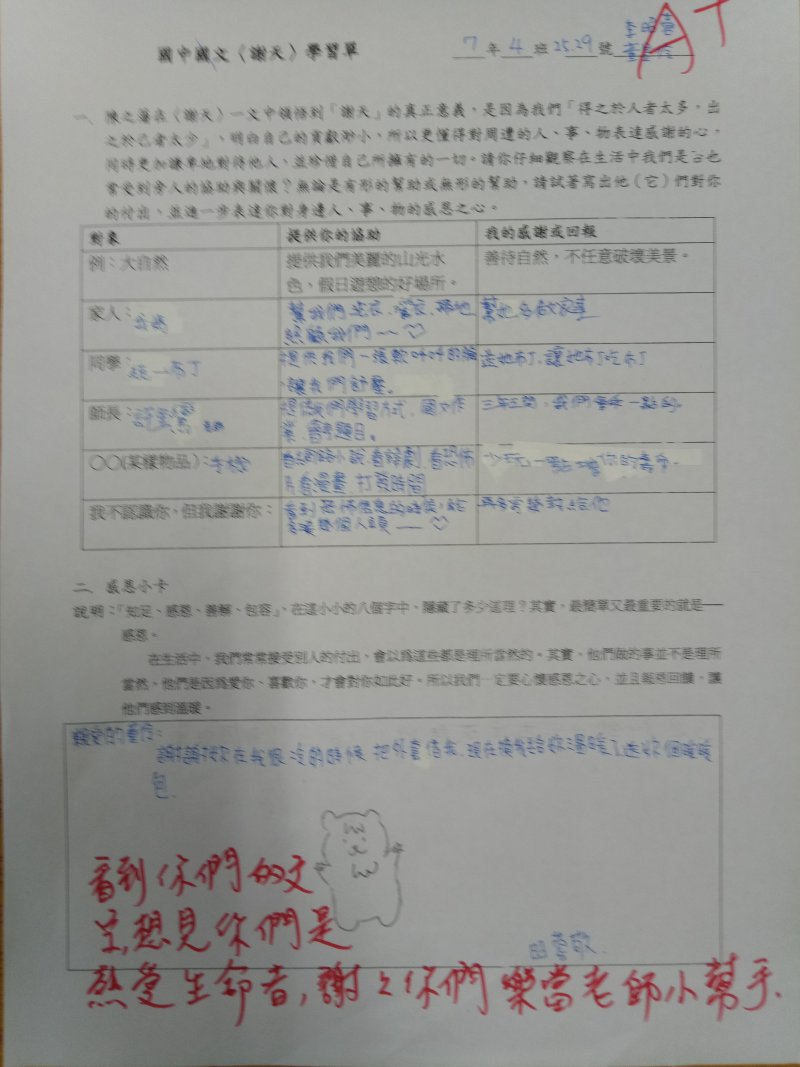 國中國文〈謝天〉學習單 7年4班25.29號
A+
一、陳之藩在〈謝天〉一文中領悟到「謝天」的真正意義，是因為我們「得之於人者太多，出
之於己者太少」，明白自己的貢獻渺小，所以更懂得對周遭的人、事、物表達感謝的心，
同時更加謙卑地對待他人、並珍惜自己所擁有的一切。請你仔細觀察在生活中我們是否也
常受到旁人的協助與關懷？無論是有形的幫助或無形的幫助，請試著寫出他（它）們對你
的付出，並進一步表達你對身邊人、事、物的感恩之心。
對象 提供你的協助 我的感謝或回報
例：大自然 提供我們美麗的山光水 善待自然，不任意破壞美景。
色，假日遊憩的好場所。
家人： 幫我們洗衣、曬衣、掃地 幫她多做家事
照顧我們~~♡
同學：統一布丁 提供我們一張軟呼呼的臉 送她布丁，讓她布丁吃布丁
讓我們舒壓。
師長： 提供我們學習方式、國文作 三年三間，我們會乖一點的。
業、題目。
○○(某樣物品)：手機 看網路小說、看韓劇、看恐怖 少玩一點增你的壽命。
片看漫畫 打發時間
我不認識你，但我謝謝你： 看到恐怖信息的時候，能
個人頭——♡
二、感恩小卡
說明：「知足、感恩、善解、包容」，在這小小的八個字中，隱藏了多少道理？其實，最簡單又最重要的就是──
感恩。
在生活中，我們常常接受別人的付出，會以為這些都是理所當然的。其實，他們做的事並不是理所
當然，他們是因為愛你、喜歡你，才會對你如此好。所以我們一定要心懷感恩之心，並且報恩回饋，讓
他們感到溫暖。
親愛的：
謝謝妳在我很冷的時候 把外套借我，現在換我給妳溫暖了送妳個暖暖
包.
看到你們的文
字，想見你們是
敬.
熱愛生命者，謝謝你們樂當老師小幫手.